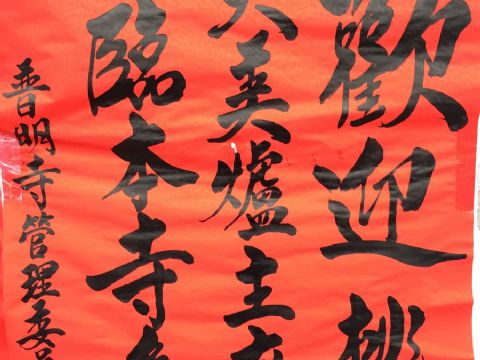 歡迎桃
美爐主
臨本寺
普明寺管理委